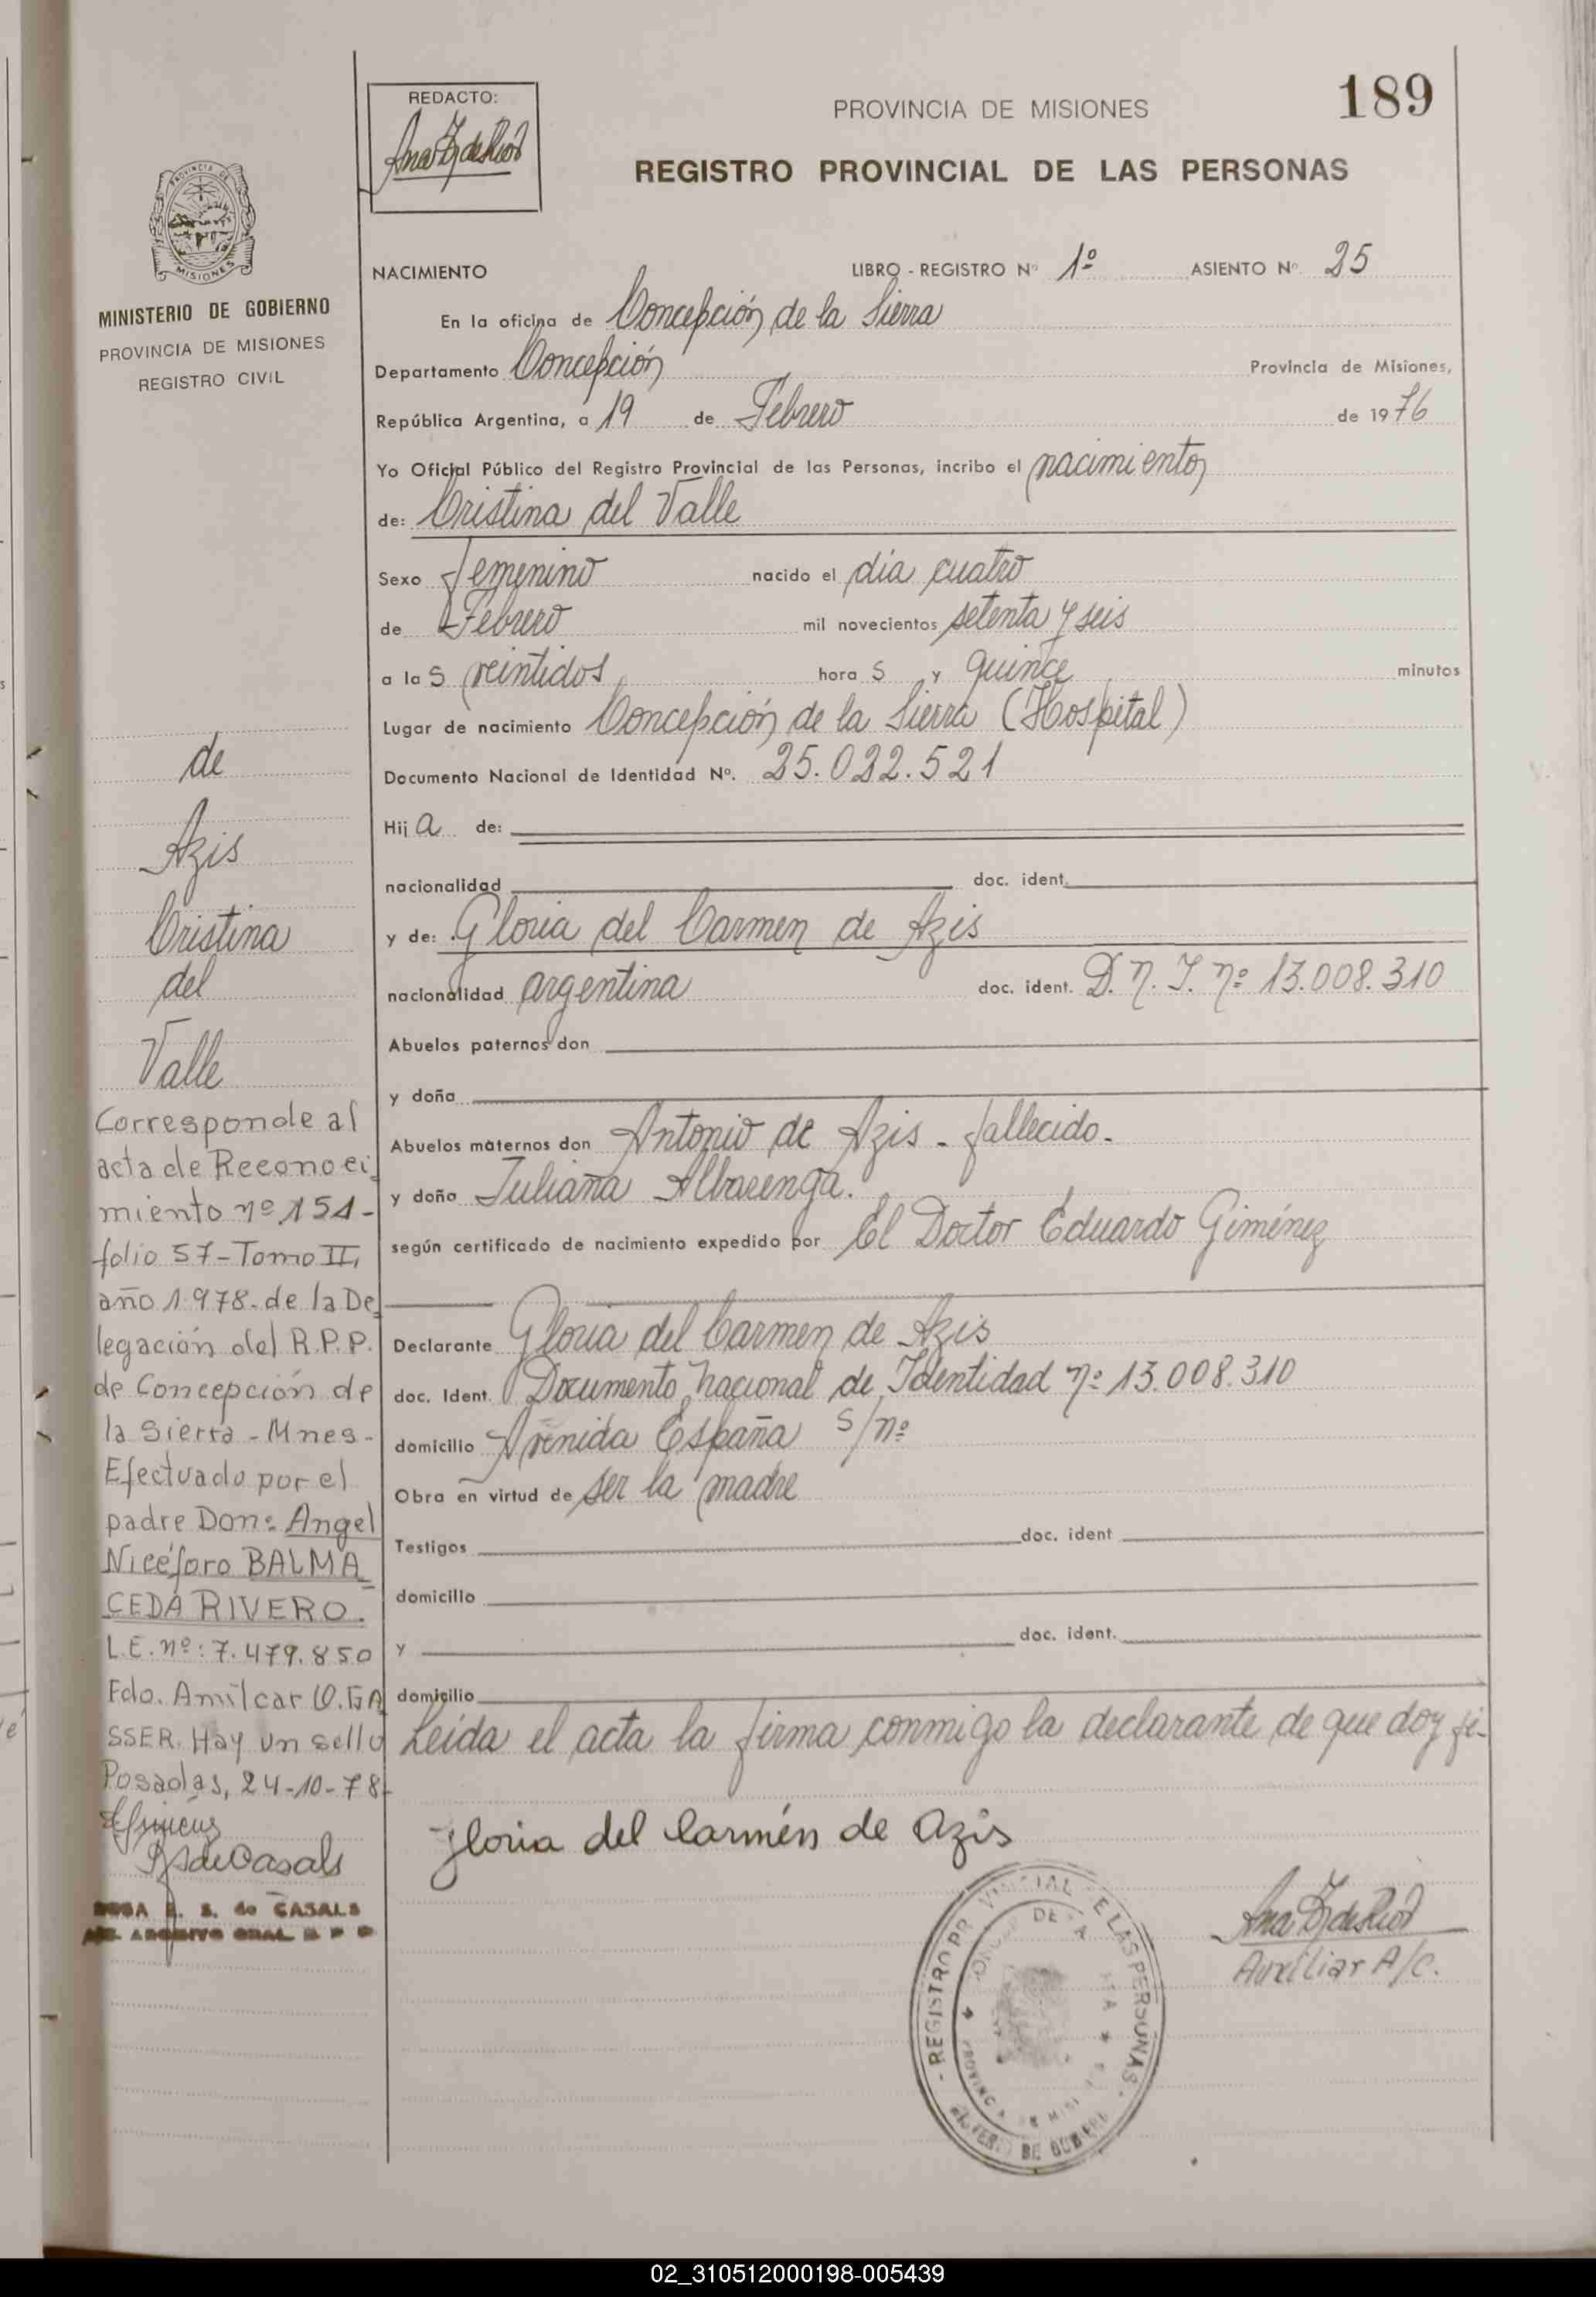 189
REDACTO:
PROVINCIA DE MISIONES
REGISTRO PROVINCIAL DE LAS PERSONAS
PROVINCIA DE
MISIONES
MINISTERIO DE GOBIERNO
PROVINCIA DE MISIONES
REGISTRO CIVIL
NACIMIENTO LIBRO - REGISTRO Nº 1º ASIENTO Nº 25
En la oficina de Concepción de la Sierra
Departamento Concepción Provincia de Misiones,
República Argentina, a 19 de Febrero de 1976
Yo Oficial Público del Registro Provincial de las Personas, incribo el nacimiento
de: Cristina del Valle
Sexo femenino nacido el día cuatro
de Febrero mil novecientos setenta y seis
a las veintidos horas y quince minutos
Lugar de nacimiento Concepción de la Sierra (Hospital)
Documento Nacional de Identidad Nº. 25.022.521
Hija de:
nacionalidad doc. ident.
y de: Gloria del Carmen de Azis
nacionalidad argentina doc. ident. D.N.I. nº 13.008.310
Abuelos paternos don
y doña
Abuelos maternos don Antonio de Azis - fallecido.
y doña Juliana Albarenga.
según certificado de nacimiento expedido por El Doctor Eduardo Giménez
Declarante Gloria del Carmen de Azis
doc. Ident. Documento Nacional de Identidad nº 13.008.310
domicilio Avenida España s/nº
Obra en virtud de ser la madre
Testigos doc. ident
domicilio
y doc. ident.
domicilio
Leída el acta la firma conmigo la declarante de que doy fé-
Gloria del Carmén de Azis
Auxiliar A/C.
de
Azis
Cristina
del
Valle
Corresponde al
acta de Reconoci
miento nº 154-
folio 57-Tomo II,
año 1.978. de la De
legación del R.P.P.
de Concepción de
la Sierra - Mnes-
Efectuado por el
padre Don: Angel
Nicéforo BALMA
CEDA RIVERO.
L.E. nº: 7.479.850
Fdo. Amilcar O. GA
SSER. Hay un sello
Posadas, 24-10-78
de Casals
ROSA S. de CASALS
ARCHIVO GRAL. R P P
REGISTRO PROVINCIAL DE LAS PERSONAS
02_310512000198-005439